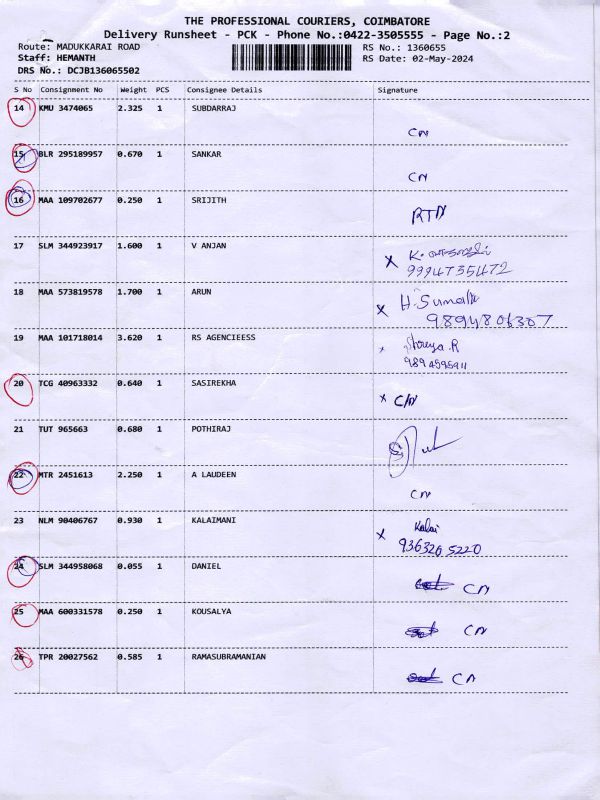 THE PROFESSIONAL COURIERS, COIMBATORE
Delivery Runsheet - PCK - Phone No.:0422-3505555 - Page No.:2
Route: MADUKKARAI ROAD RS No.: 1360655
Staff: HEMANTH RS Date: 02-May-2024
DRS No.: DCJB136065502
S No Consignment No Weight PCS Consignee Details Signature
14 KMU 3474065 2.325 1 SUBDARRAJ
CN
15 BLR 295189957 0.670 1 SANKAR
CN
16 MAA 109702677 0.250 1 SRIJITH
RTN
17 SLM 344923917 1.600 1 V ANJAN
X K.
9994735472
18 MAA 573819578 1.700 1 ARUN
X H.
9894806307
19 MAA 101718014 3.620 1 RS AGENCIEESS
x Shreya.R
20 TCG 40963332 0.640 1 SASIREKHA
x C/N
21 TUT 965663 0.680 1 POTHIRAJ
22 MTR 2451613 2.250 1 A LAUDEEN
CN
23 NLM 90406767 0.930 1 KALAIMANI
X Kalai
936326 5220
24 SLM 344958068 0.055 1 DANIEL
CN
25 MAA 600331578 0.250 1 KOUSALYA
CN
26 TPR 20027562 0.585 1 RAMASUBRAMANIAN
CN